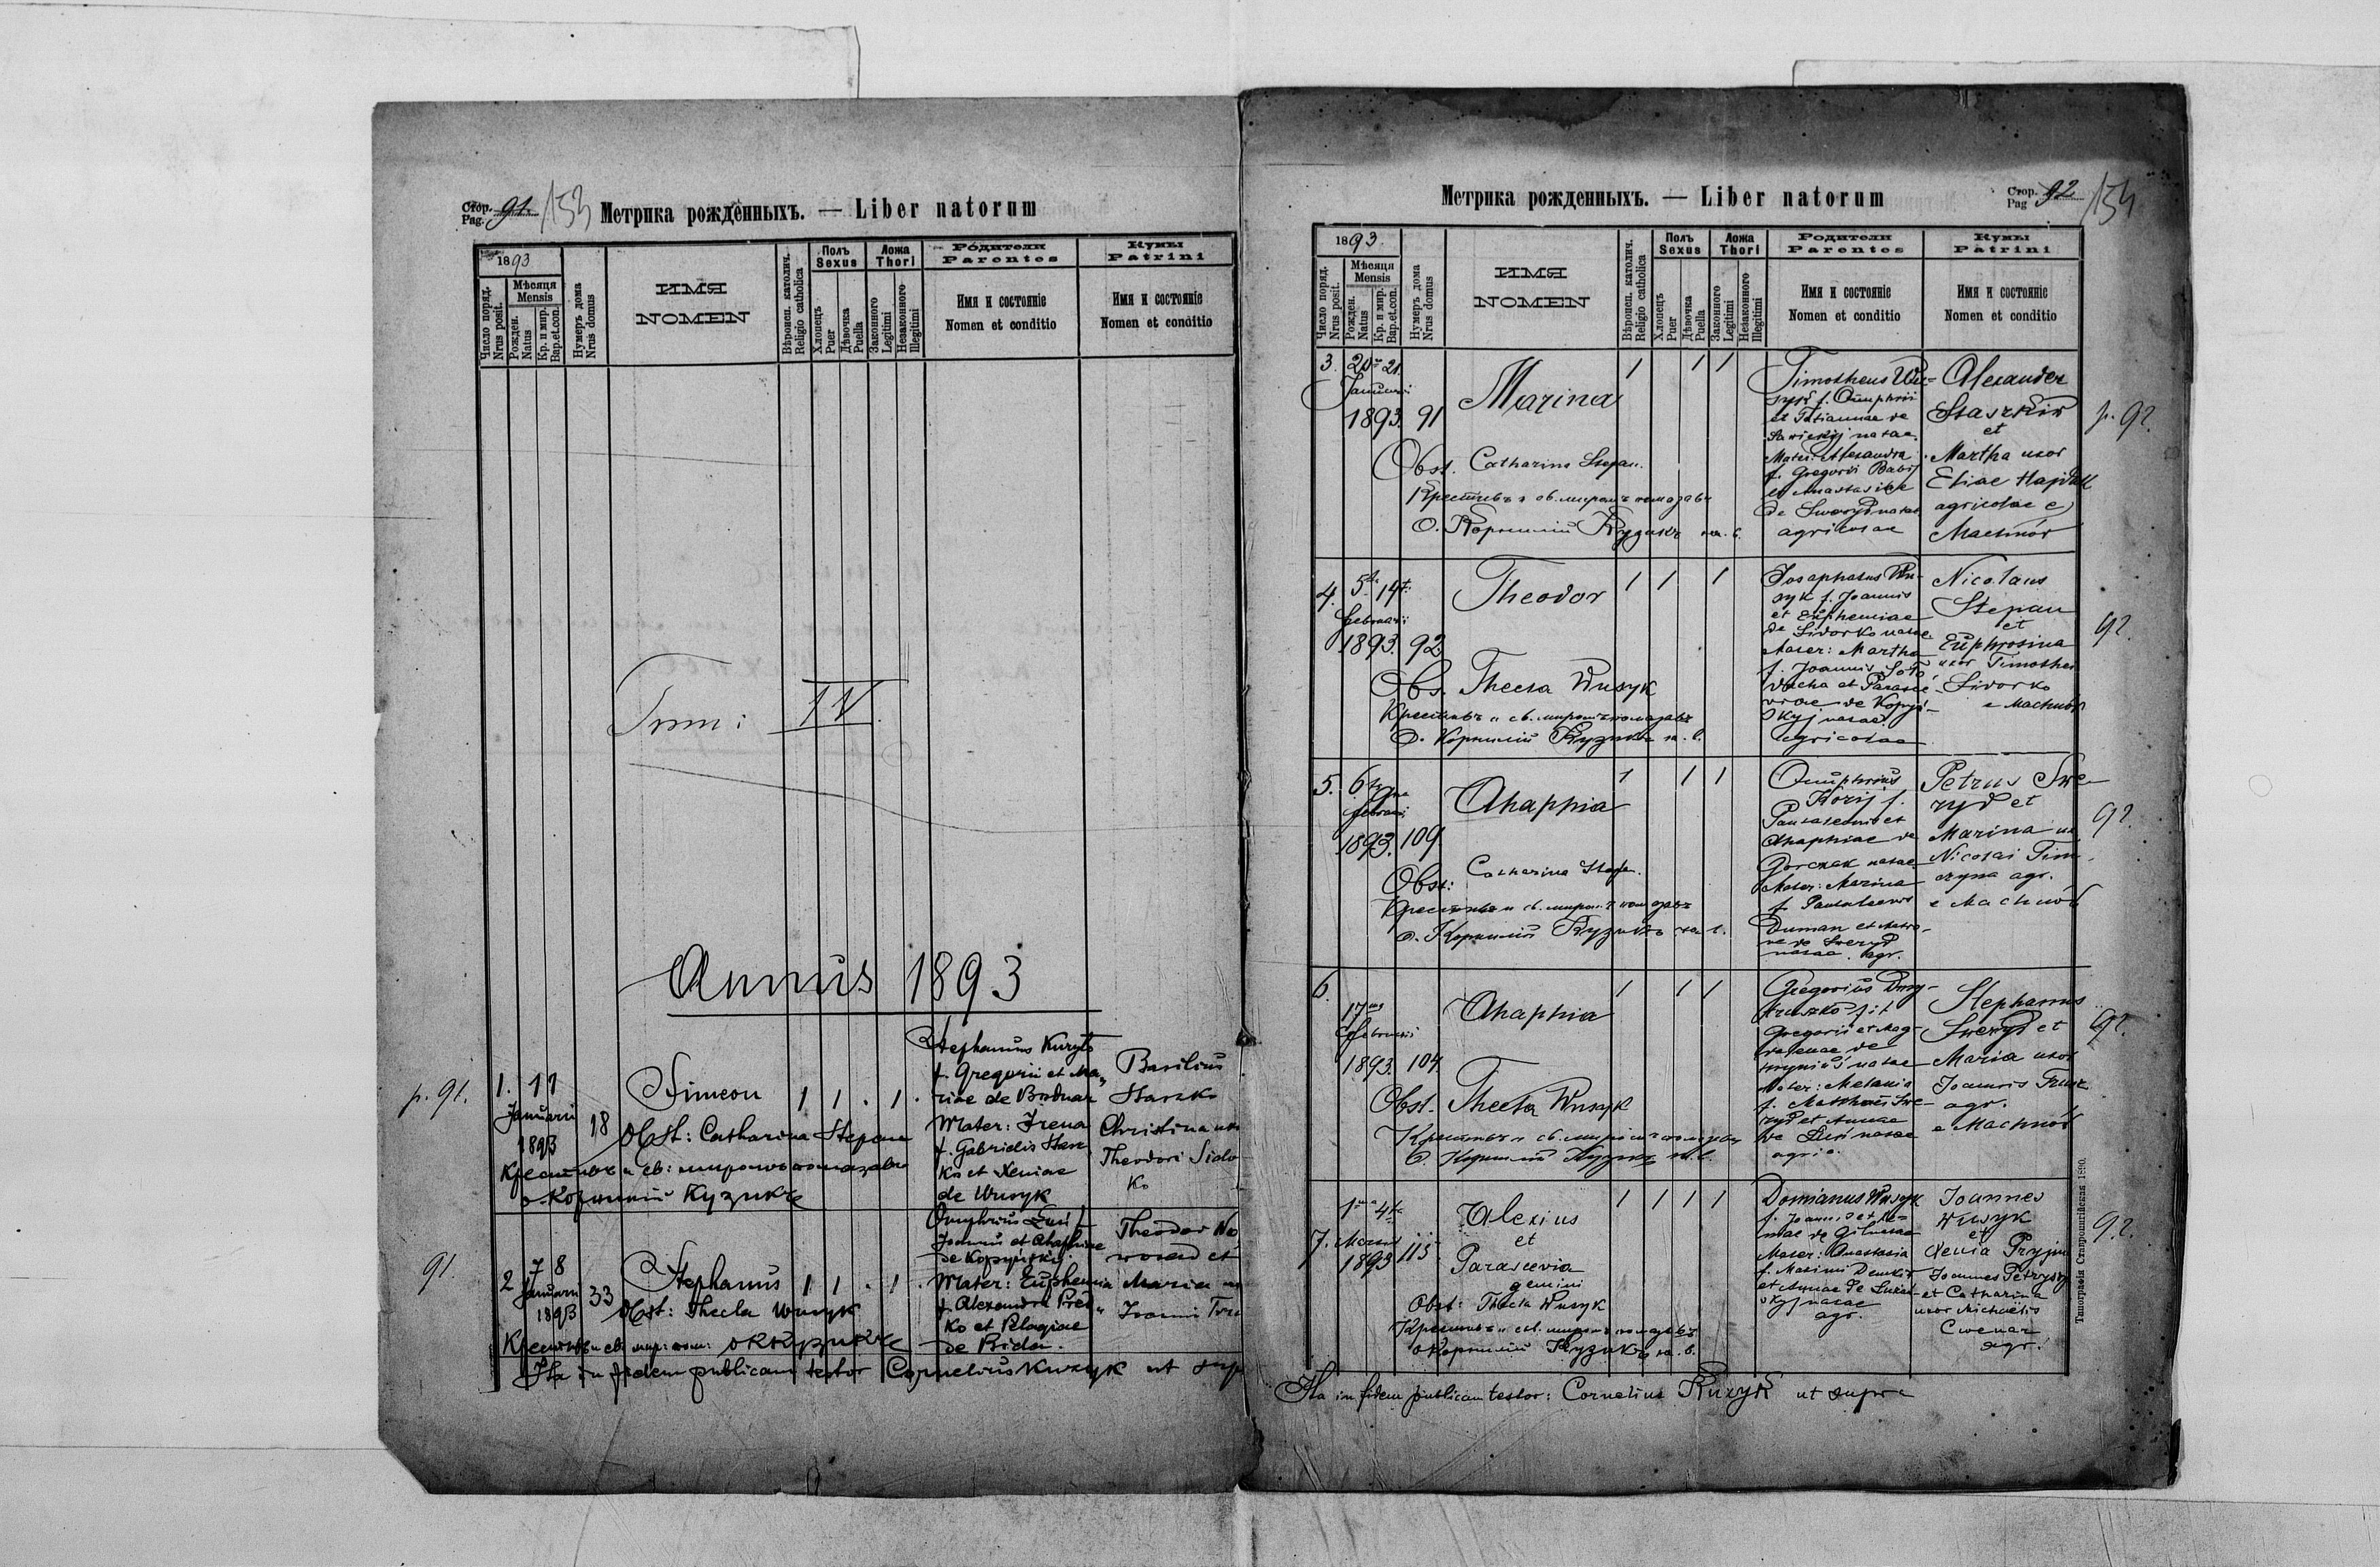 Стор. Pag. 91. 153
Метрика рожденныхъ. — Liber natorum
1893
Число поряд. Nrus posit.
Мѣсяця Mensis
Рожден. Natus
Кр. и мир. Bap. et con.
Нумеръ дома Nrus domus
ИМЯ
NOMEN
Вѣроисп. католич. Religio catholica
Полъ Sexus
Хлопецъ Puer
Дѣвочка Puella
Ложа Thori
Законного Legitimi
Незаконного Illegitimi
Родители
Parentes
Имя и состояніе
Nomen et conditio
Кумы
Patrini
Имя и состояніе
Nomen et conditio
Tom: IV.
Annus 1893
p. 91.
1. 11
Januarii
1893
18
Simeon 1 1 . 1 .
Obst: Catharina Stepan
Крестивъ и св: миромъ помазавъ
о Корнилій Кузикъ
Stephanus Kuryło
f. Gregorii et Ma-
riae de Bodnar
Mater: Irena
f. Gabrielis Stasz
ko et Xeniae
de Wusyk
Basilius
Staszko
Christina
Theodori Sido
ko
91.
2 7 8
Januarii
1893
33
Stephanus 1 1 . 1 .
Obst: Thecla Wusyk
Onuphrius
Joannis et Ahaphiae
de Kopyński
Mater: Euphemia
f. Alexandri
ko et Pelagiae
de Bida.
Theodor
et
Maria
Ita in fidem publicam testor Cornelius Kuzyk ut sup
Метрика рожденныхъ. — Liber natorum
Стор. Pag 92 154
1893.
Число поряд. Nrus posit.
Мѣсяця Mensis
Рожден. Natus
Кр. и мир. Bap. et con.
Нумеръ дома Nrus domus
ИМЯ
NOMEN
Вѣроисп. католич. Religio catholica
Полъ Sexus
Хлопецъ Puer
Дѣвочка Puella
Ложа Thori
Законного Legitimi
Незаконного Illegitimi
Родители
Parentes
Имя и состояніе
Nomen et conditio
Кумы
Patrini
Имя и состояніе
Nomen et conditio
3. 20 21.
Januarii
1893. 91
Marina 1 1 1
Obst. Catharina Stepan.
Крестивъ и св. миромъ помазавъ
О. Корнилій Кузикъ
Timotheus Wu-
syk f. Onuphrii
et Tatiannae de
Sawickij natae.
Mater: Alexandra
f. Gregorii Babij
et Anastasiae
de Sweryd natae
agricolae
Alexander
Staszkiw
et
Martha uxor
Eliae Hajduk
agricolae e
Machnów
p. 92.
4. 5 14
Februarii
1893. 92.
Theodor 1 1 1
Obs. Thecla Wusyk
Крестивъ и св. миромъ помазавъ
О. Корнилій Кузикъ
Josaphatus Wu-
syk f. Joannis
et Euphemiae
de Sidorko natae
Mater: Martha
f. Joannis Soło
ducha et Parasce
viae de Kopyń-
skyj natae.
agricolae
Nicolaus
Stepan
et
Euphrosina
uxor Timothei
Sidorko
e Machnów
92.
5. 6
Februarii
1893. 109.
Ahaphia 1 1 1
Obst: Catharina Stepan.
Крестивъ и св. миромъ помазавъ
О. Корнилій Кузикъ
Onuphrius
f.
et
Ahaphiae de
Gorczak natae
Mater: Marina
f.
Duman et
de Sweryd
natae. agr.
Petrus Swe-
ryd et
Marina
Nicolai
agr.
e Machnów
92.
6.
17
Februarii
1893. 104.
Ahaphia 1 1 1
Obst. Thecla Wusyk
Крестивъ и св. миромъ помазавъ
О. Корнилій Кузикъ
Gregorius
Gregorii et Mag-
dalenae de
natae
Mater: Melania
f. Matthaei Swe-
ryd et Annae
de natae
agric.
Stephanus
Sweryd et
Maria uxor
Joannis
agr.
e Machnów
92.
7. 1 4
Martii
1893 115
Alexius 1 1 1 1
et
Parascevia
gemini
Obst: Thecla Wusyk
Крестивъ и св. миромъ помазавъ
о Корнилій Кузикъ
Domianus Wusyk
f. Joannis et
Mater: Anastasia
f. Maximi
et Annae de
skyj natae
agr.
Joannes
Wusyk
et
Xenia
Joannes
et Catharina
uxor Michaelis
Cwenar
agr.
92.
Ita in fidem publicam testor: Cornelius Kuzyk ut supra
Типографія Ставропигійская 1890.